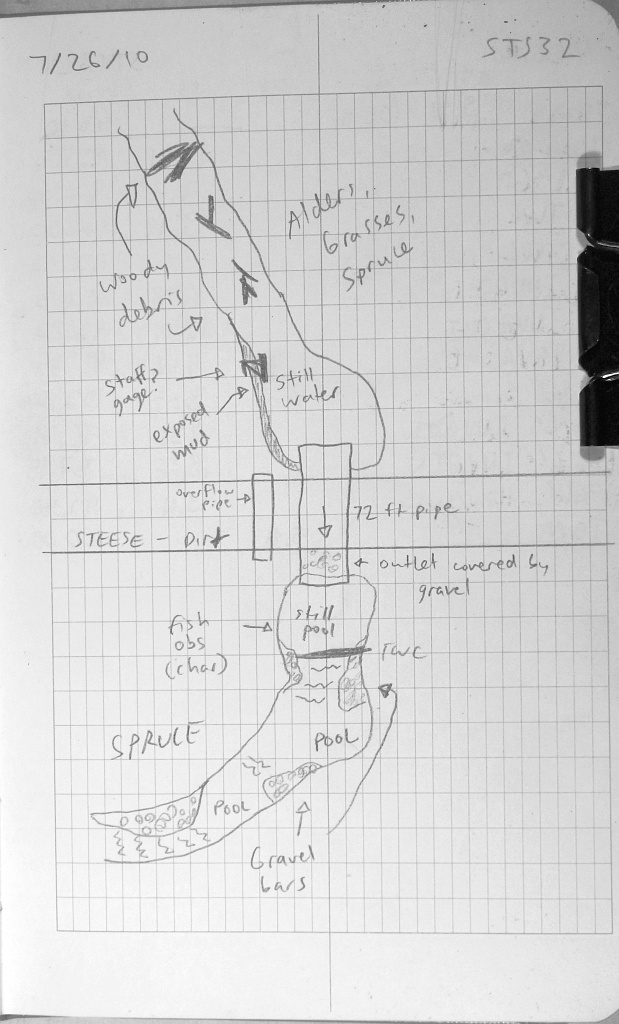 7/26/10
STS32
Alders,
Grasses,
Spruce
woody
debris
staff?
gage.
exposed
mud
still
water
overflow
pipe
72 ft pipe
STEESE - Dirt
outlet covered by
gravel
still
pool
fish
obs
(char)
TWC
SPRUCE
POOL
POOL
Gravel
bars